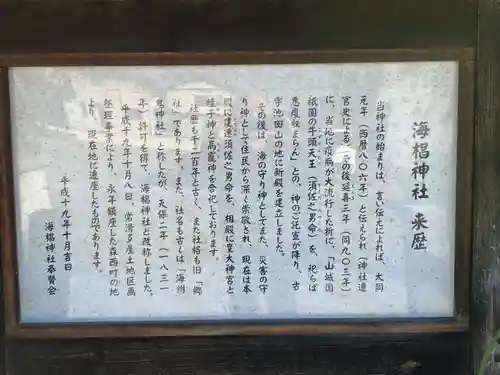 海椙神社 来歴
当神社の始まりは、言い伝えによれば、大同
元年（西暦八〇六年）と伝えられ（神社連
宮史による）その後延喜三年（同九〇三年）
に、当地に疫病が大流行した折に、「山城国
祇園の牛頭天王（須佐之男命）を、祀らば
悪疫収まらん」との、神のご託宣が降り、古
宇池田山の地に新殿を建立しました。
その後は、海の守り神としてまた、災害の守
り神として住民から深く崇敬され、現在は本
殿に建速須佐之男命を、相殿に豊大神宮と
蛭子神と高龗神を合祀しております。
社歴も千二百年と古く、また社格も旧「郷
社」であります。また、社名も古くは「海州
君神社」と称したが、天保二年（一八三一
年）許可を得て、海椙神社と改称しました。
平成十九年十月八日、常滑多屋土地区画
整理事業により、永年鎮座した森西町の地
より、現在地に遷座したものであります。
平成十九年十月吉日
海椙神社奉賛会